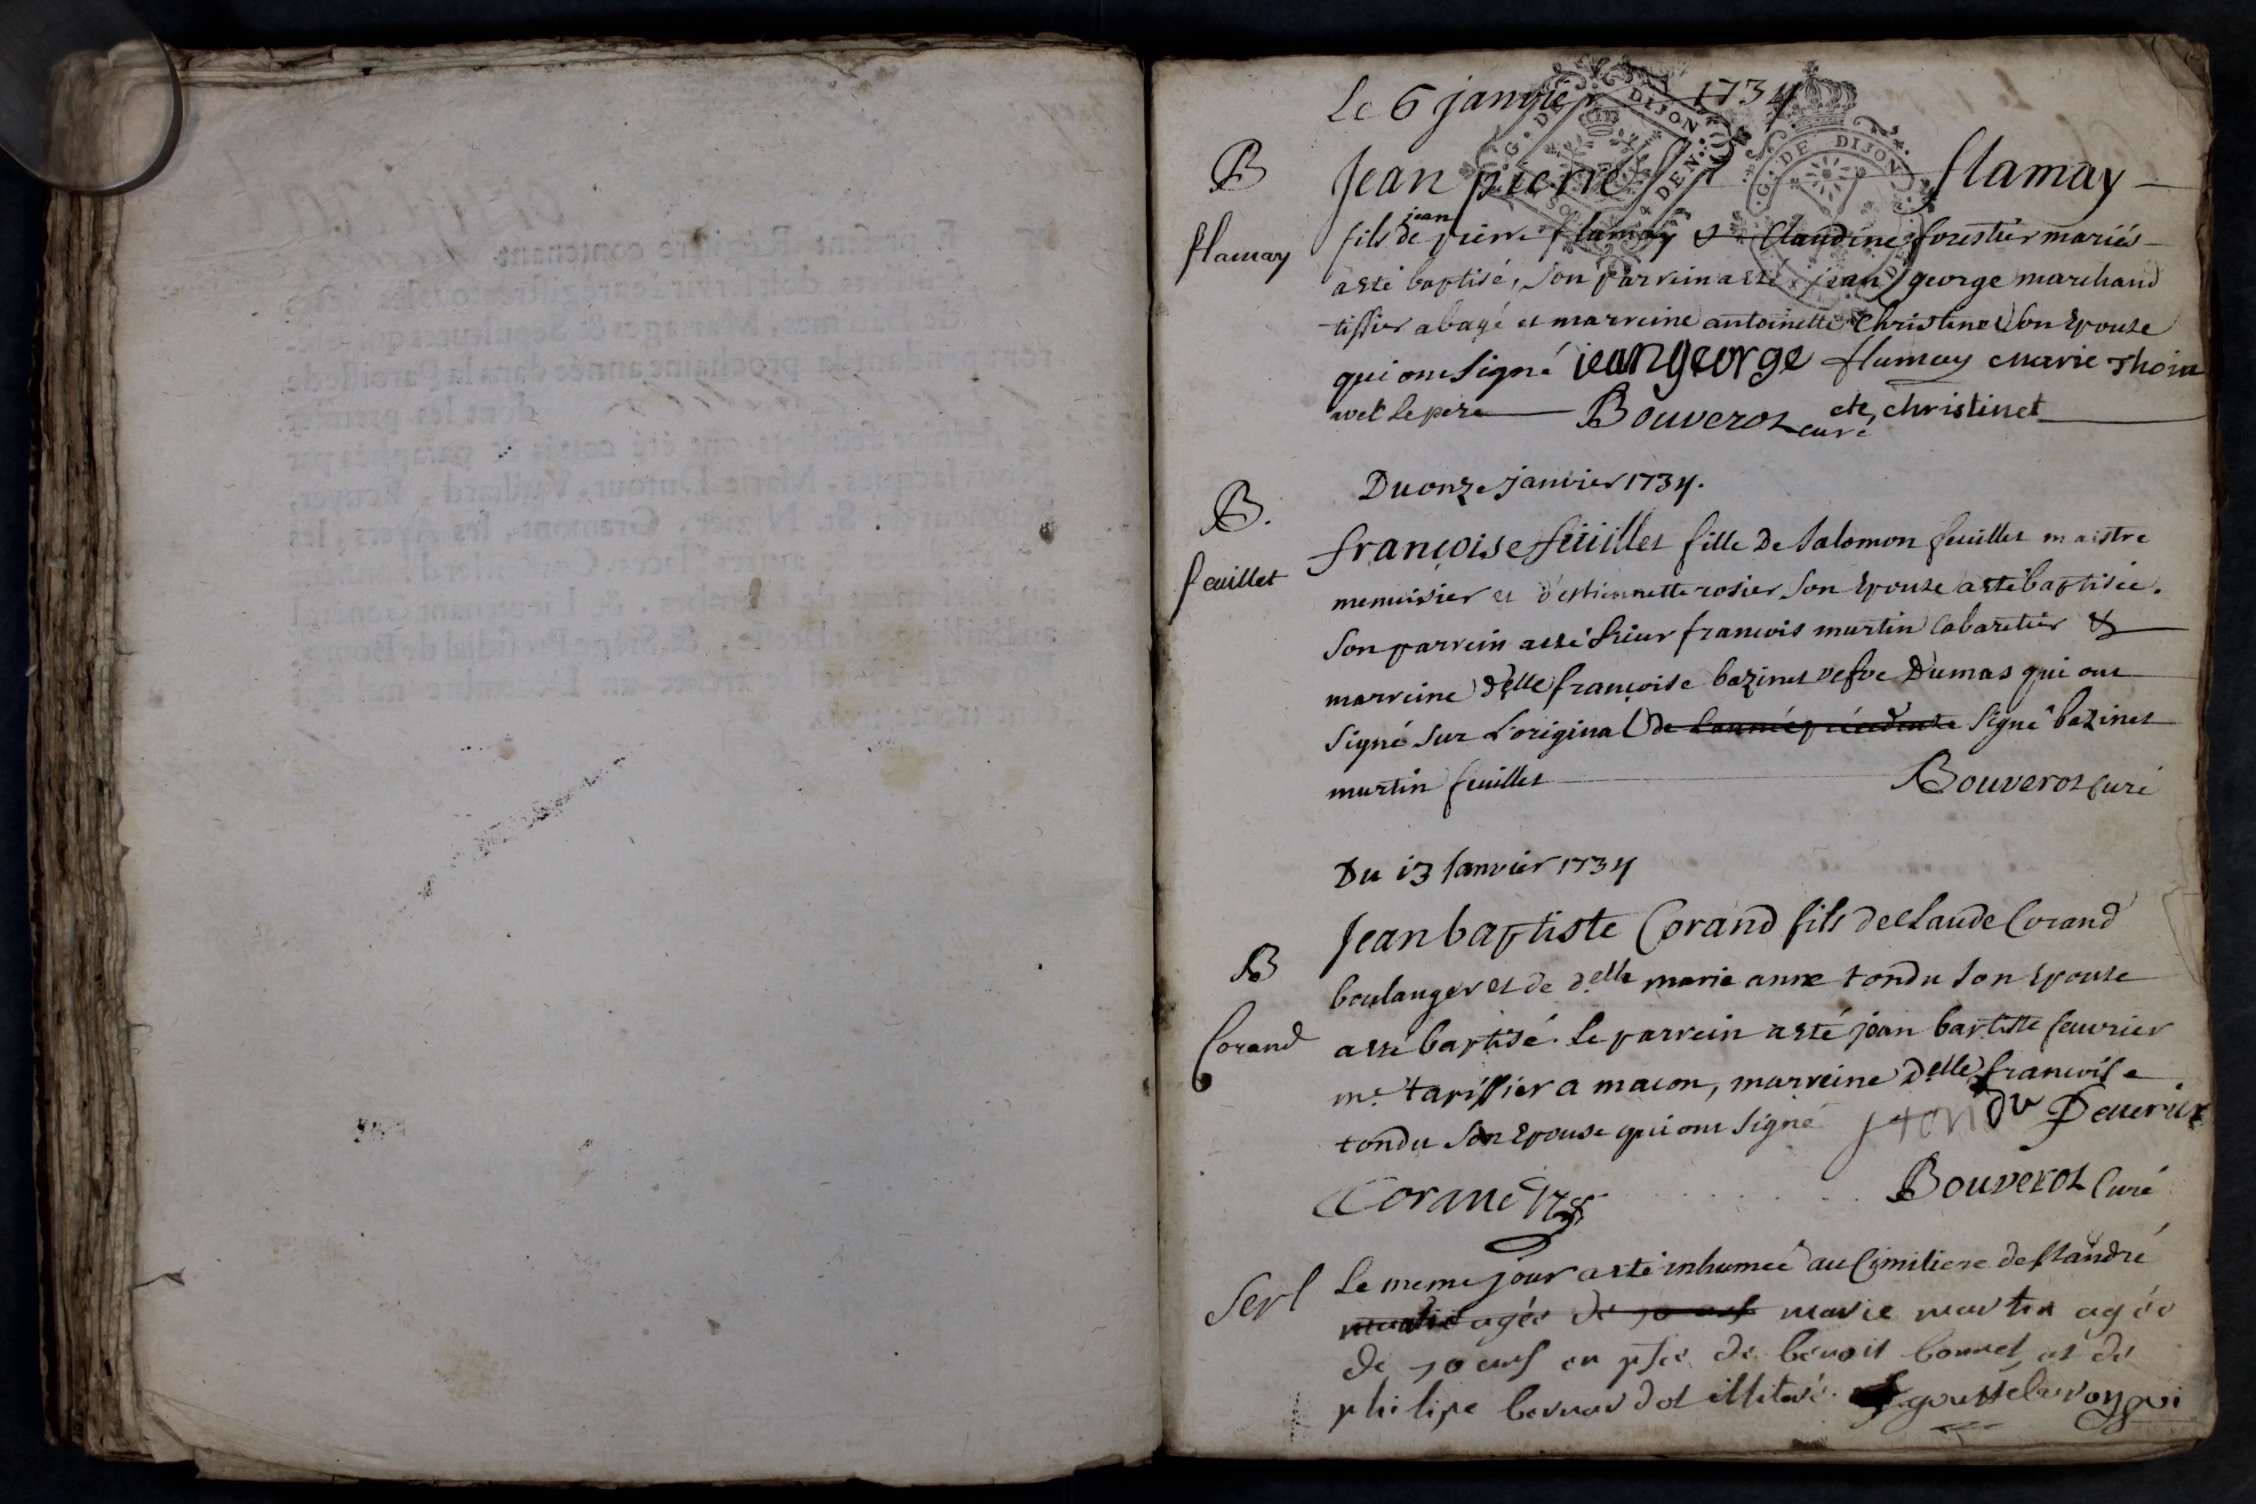 Le 6 janvier 1734
B
Jean pierre flamay
flamay
jean
fils de pierre flamay & Claudine forestier mariés
a esté baptisé, son parrein a esté jean george marchand
tissier a bagé et marreine antoinette Christinet son Epouse
qui ont signé jean george flamay marie Thoin
avec le pere Bouverot curé christinet
Du onze janvier 1734.
B.
françoise feüillet fille De Salomon feuillet maistre
feuillet
menuisier et d'estiennette rosier son Epouse a esté baptisée.
Son parrein a esté Sieur françois martin Cabaretier &
marreine delle françoise bazinet vefve Dumas qui ont
signé sur L'original de l'année précédente signé bazinet
martin feuillet Bouverot Curé
Du 13 Janvier 1734
Jean baptiste Corand fils de Claude Corand
B
boulanger et de delle marie anne tondu son Epouse
Corand
a esté baptisé. Le parrein a esté jean baptiste feuvrier
me. tapissier a macon, marreine Delle françoise
tondu son Epouse qui ont signé f tondu
Corand Bouverot Curé
Le meme jour a esté inhumée au Cimitiere de st andré
agée de 70 ans marie martin agée
de 70 ans en psce de benoit bonnet et de
philipe bernardot illiteré.
G. DE DIJON
G. DE DIJON